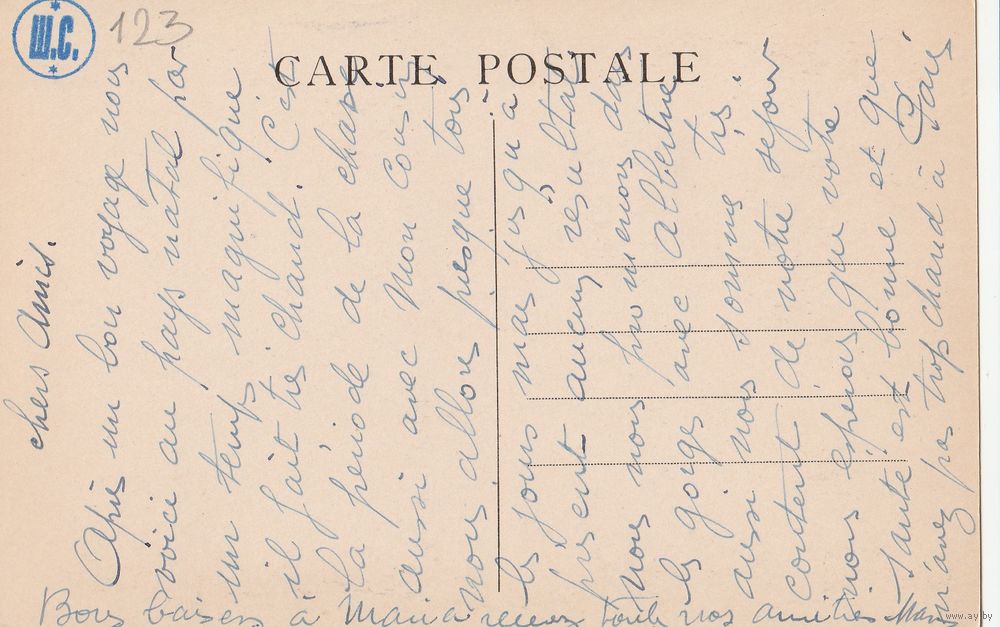 Ш.С.
123
CARTE POSTALE
chers Amis.
Après un bon voyage nous
voici au pays natal par
un temps magnifique
il fait très chaud. C'est
la période de la chasse
aussi avec mon cousin
nous allons presque tous
les jours mais jusqu'à
présent aucun résultat
nous nous promenons dans
les gorges avec Albertine
aussi nous sommes très
content de notre séjour
nous espérons que votre
santé est bonne et que
n'avez pas trop chaud à Paris
Bons baisers à Maria recevez toute nos amitiés
www.ay.by